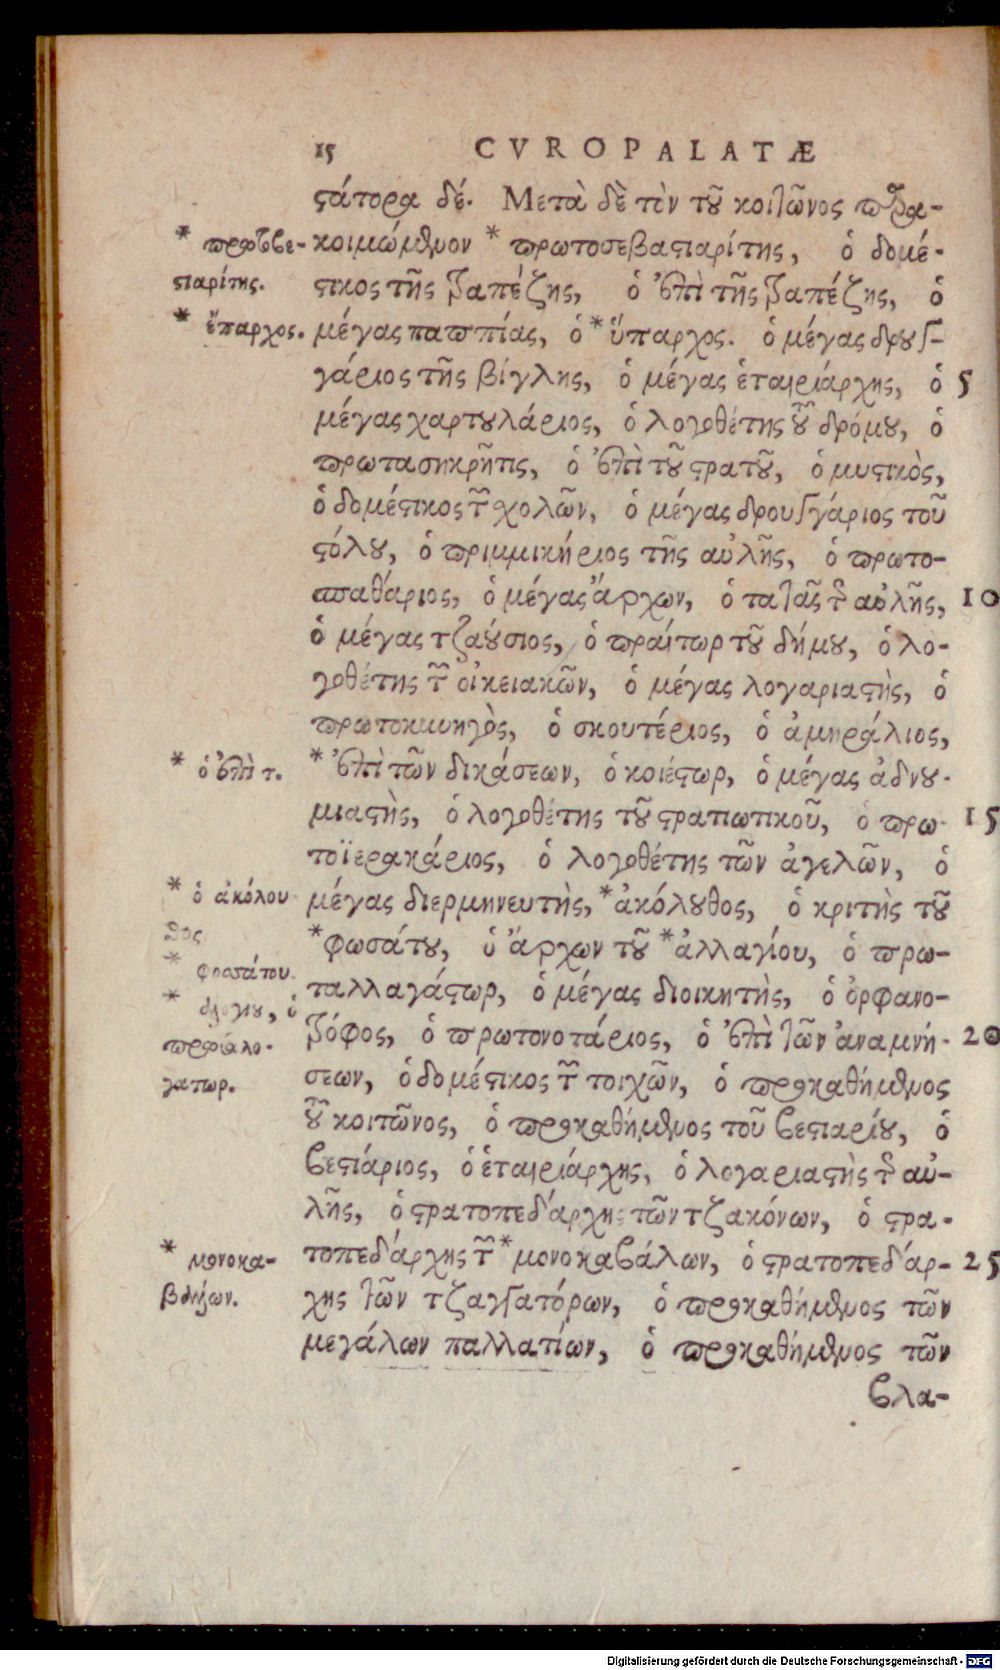 15 CVROPALATÆ
στάτορα δέ. Μετὰ δὲ τὸν τοῦ κοιτῶνος παρα-
κοιμώμενον * πρωτοσεβαστιαρίτης, ὁ δομέ-
στικος τῆς τραπέζης, ὁ ἐπὶ τῆς τραπέζης, ὁ
μέγας παππίας, ὁ * ὕπαρχος. ὁ μέγας δρουγ-
γάριος τῆς βίγλης, ὁ μέγας ἑταιριάρχης, ὁ 5
μέγας χαρτουλάριος, ὁ λογοθέτης τοῦ δρόμου, ὁ
πρωτασηκρῆτις, ὁ ἐπὶ τοῦ στρατοῦ, ὁ μυστικὸς,
ὁ δομέστικος τῶν σχολῶν, ὁ μέγας δρουγγάριος τοῦ
στόλου, ὁ πριμμικήριος τῆς αὐλῆς, ὁ πρωτο-
σπαθάριος, ὁ μέγας ἄρχων, ὁ τατᾶς τῆς αὐλῆς, 10
ὁ μέγας τζαούσιος, ὁ πραίτωρ τοῦ δήμου, ὁ λο-
γοθέτης τῶν οἰκειακῶν, ὁ μέγας λογαριαστὴς, ὁ
πρωτοκυνηγὸς, ὁ σκουτέριος, ὁ ἀμηράλιος,
* ἐπὶ τῶν δικάσεων, ὁ κοιέστωρ, ὁ μέγας ἀδνου-
μιαστὴς, ὁ λογοθέτης τοῦ στρατιωτικοῦ, ὁ πρω- 15
τοϊερακάριος, ὁ λογοθέτης τῶν ἀγελῶν, ὁ
μέγας διερμηνευτὴς, * ἀκόλουθος, ὁ κριτὴς τοῦ
* φωσάτου, ὁ ἄρχων τοῦ * ἀλλαγίου, ὁ πρω-
ταλλαγάστωρ, ὁ μέγας διοικητὴς, ὁ ὀρφανο-
τρόφος, ὁ πρωτονοτάριος, ὁ ἐπὶ τῶν ἀναμνή- 20
σεων, ὁ δομέστικος τῶν τοιχῶν, ὁ προκαθήμενος
τοῦ κοιτῶνος, ὁ προκαθήμενος τοῦ βεστιαρίου, ὁ
βεστιάριος, ὁ ἑταιριάρχης, ὁ λογαριαστὴς τῆς αὐ-
λῆς, ὁ στρατοπεδάρχης τῶν τζακόνων, ὁ στρα-
τοπεδάρχης τῶν * μονοκαβάλων, ὁ στρατοπεδάρ- 25
χης τῶν τζαγγατόρων, ὁ προκαθήμενος τῶν
μεγάλων παλλατίων, ὁ προκαθήμενος τῶν
βλα-
* πρωτοβε-
στιαρίτης.
* ἔπαρχος.
* ὁ ἐπὶ τ.
* ὁ ἀκόλου
θος
* φοσάτου.
* ὁ
γατωρ.
* μονοκα-
Digitalisierung gefördert durch die Deutsche Forschungsgemeinschaft - DFG